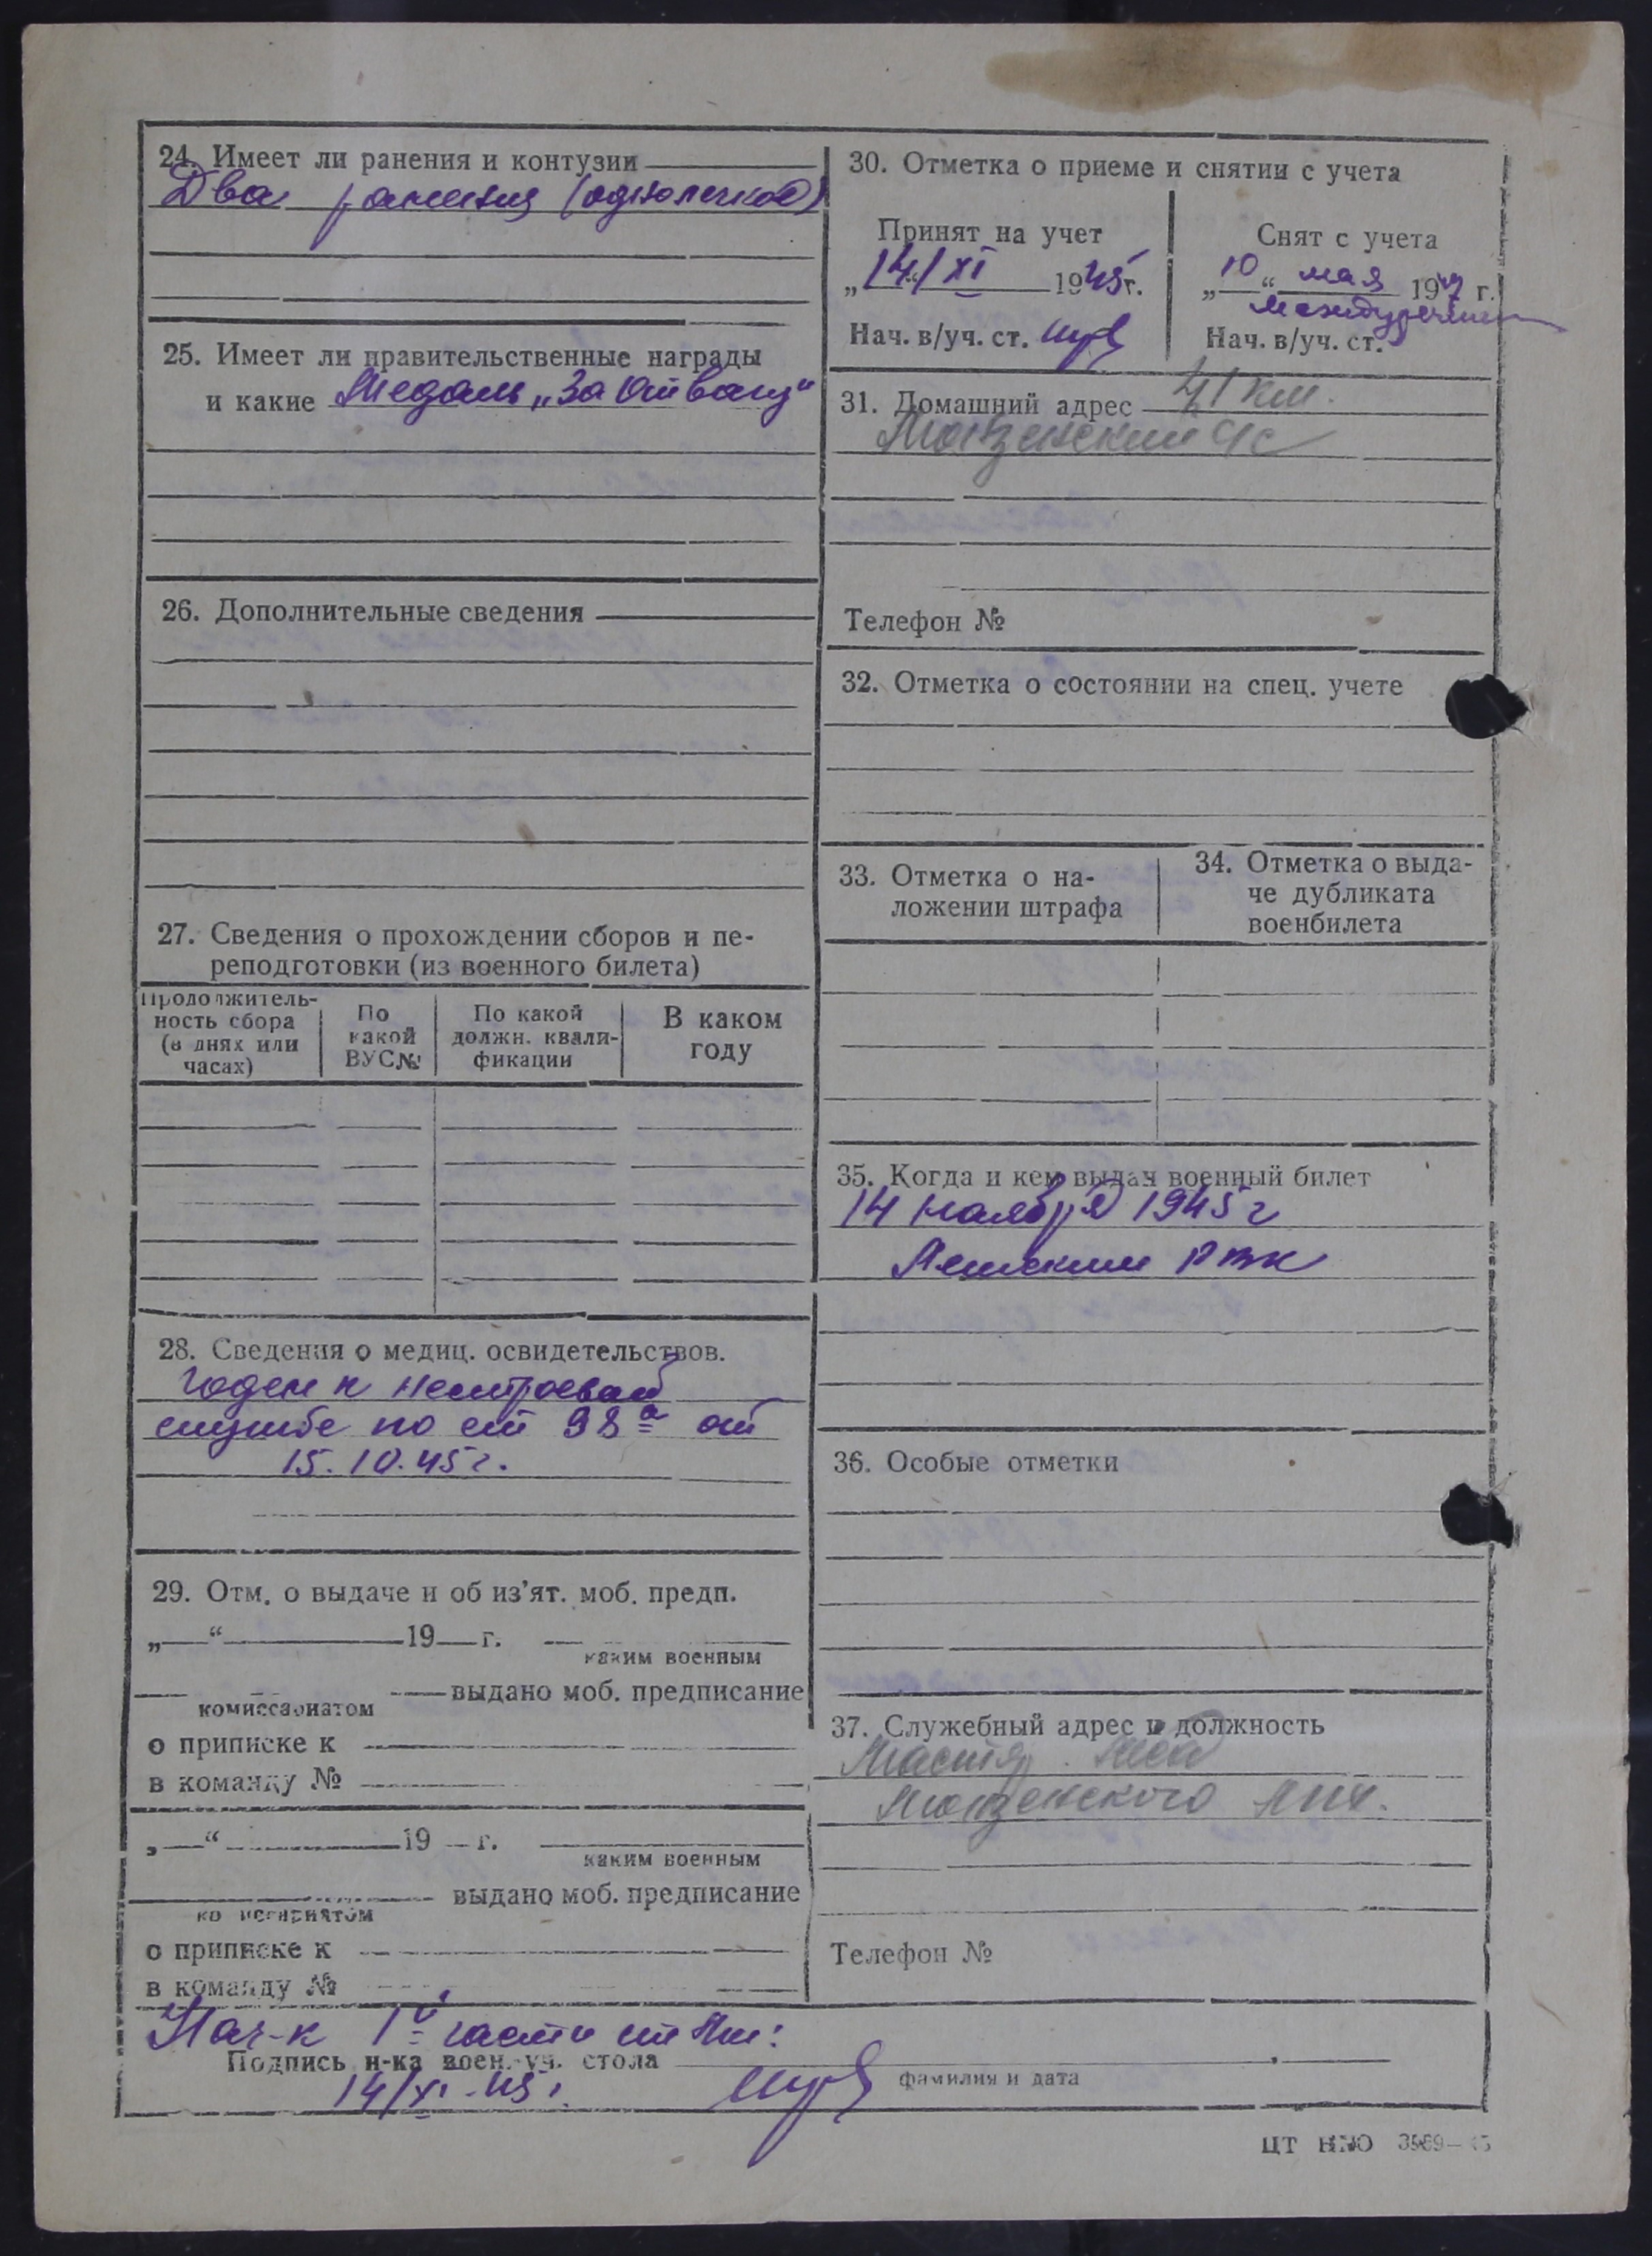 24. Имеет ли ранения и контузии
Два ранения (одно легкое)
25. Имеет ли правительственные награды
и какие Медаль „За Отвагу“
26. Дополнительные сведения
27. Сведения о прохождении сборов и пе-
реподготовки (из военного билета)
Продолжитель-
ность сбора
(в днях или
часах)
По
какой
ВУС№
По какой
должн. квали-
фикации
В каком
году
28. Сведения о медиц. освидетельствов.
Годен к нестроевой
службе по ст 98а от
15.10.45г.
29. Отм. о выдаче и об из’ят. моб. предп.
„ “ 19 г.
каким военным
выдано моб. предписание
комиссариатом
о приписке к
в команду №
„ “ 19 г.
каким военным
выдано моб. предписание
комиссариатом
о приписке к
в команду №
30. Отметка о приеме и снятии с учета
Принят на учет
„14“/XI 1945г.
Нач. в/уч. ст.
Снят с учета
„10“ мая 194 г.
Нач. в/уч. ст.
31. Домашний адрес 41 км.
Телефон №
32. Отметка о состоянии на спец. учете
33. Отметка о на-
ложении штрафа
34. Отметка о выда-
че дубликата
военбилета
35. Когда и кем выдан военный билет
14 ноября 1945 г
РВК
36. Особые отметки
37. Служебный адрес и должность
Телефон №
Нач-к 1й части
Подпись н-ка воен.-уч. стола
14/XI-45г.
фамилия и дата
ЦТ НКО